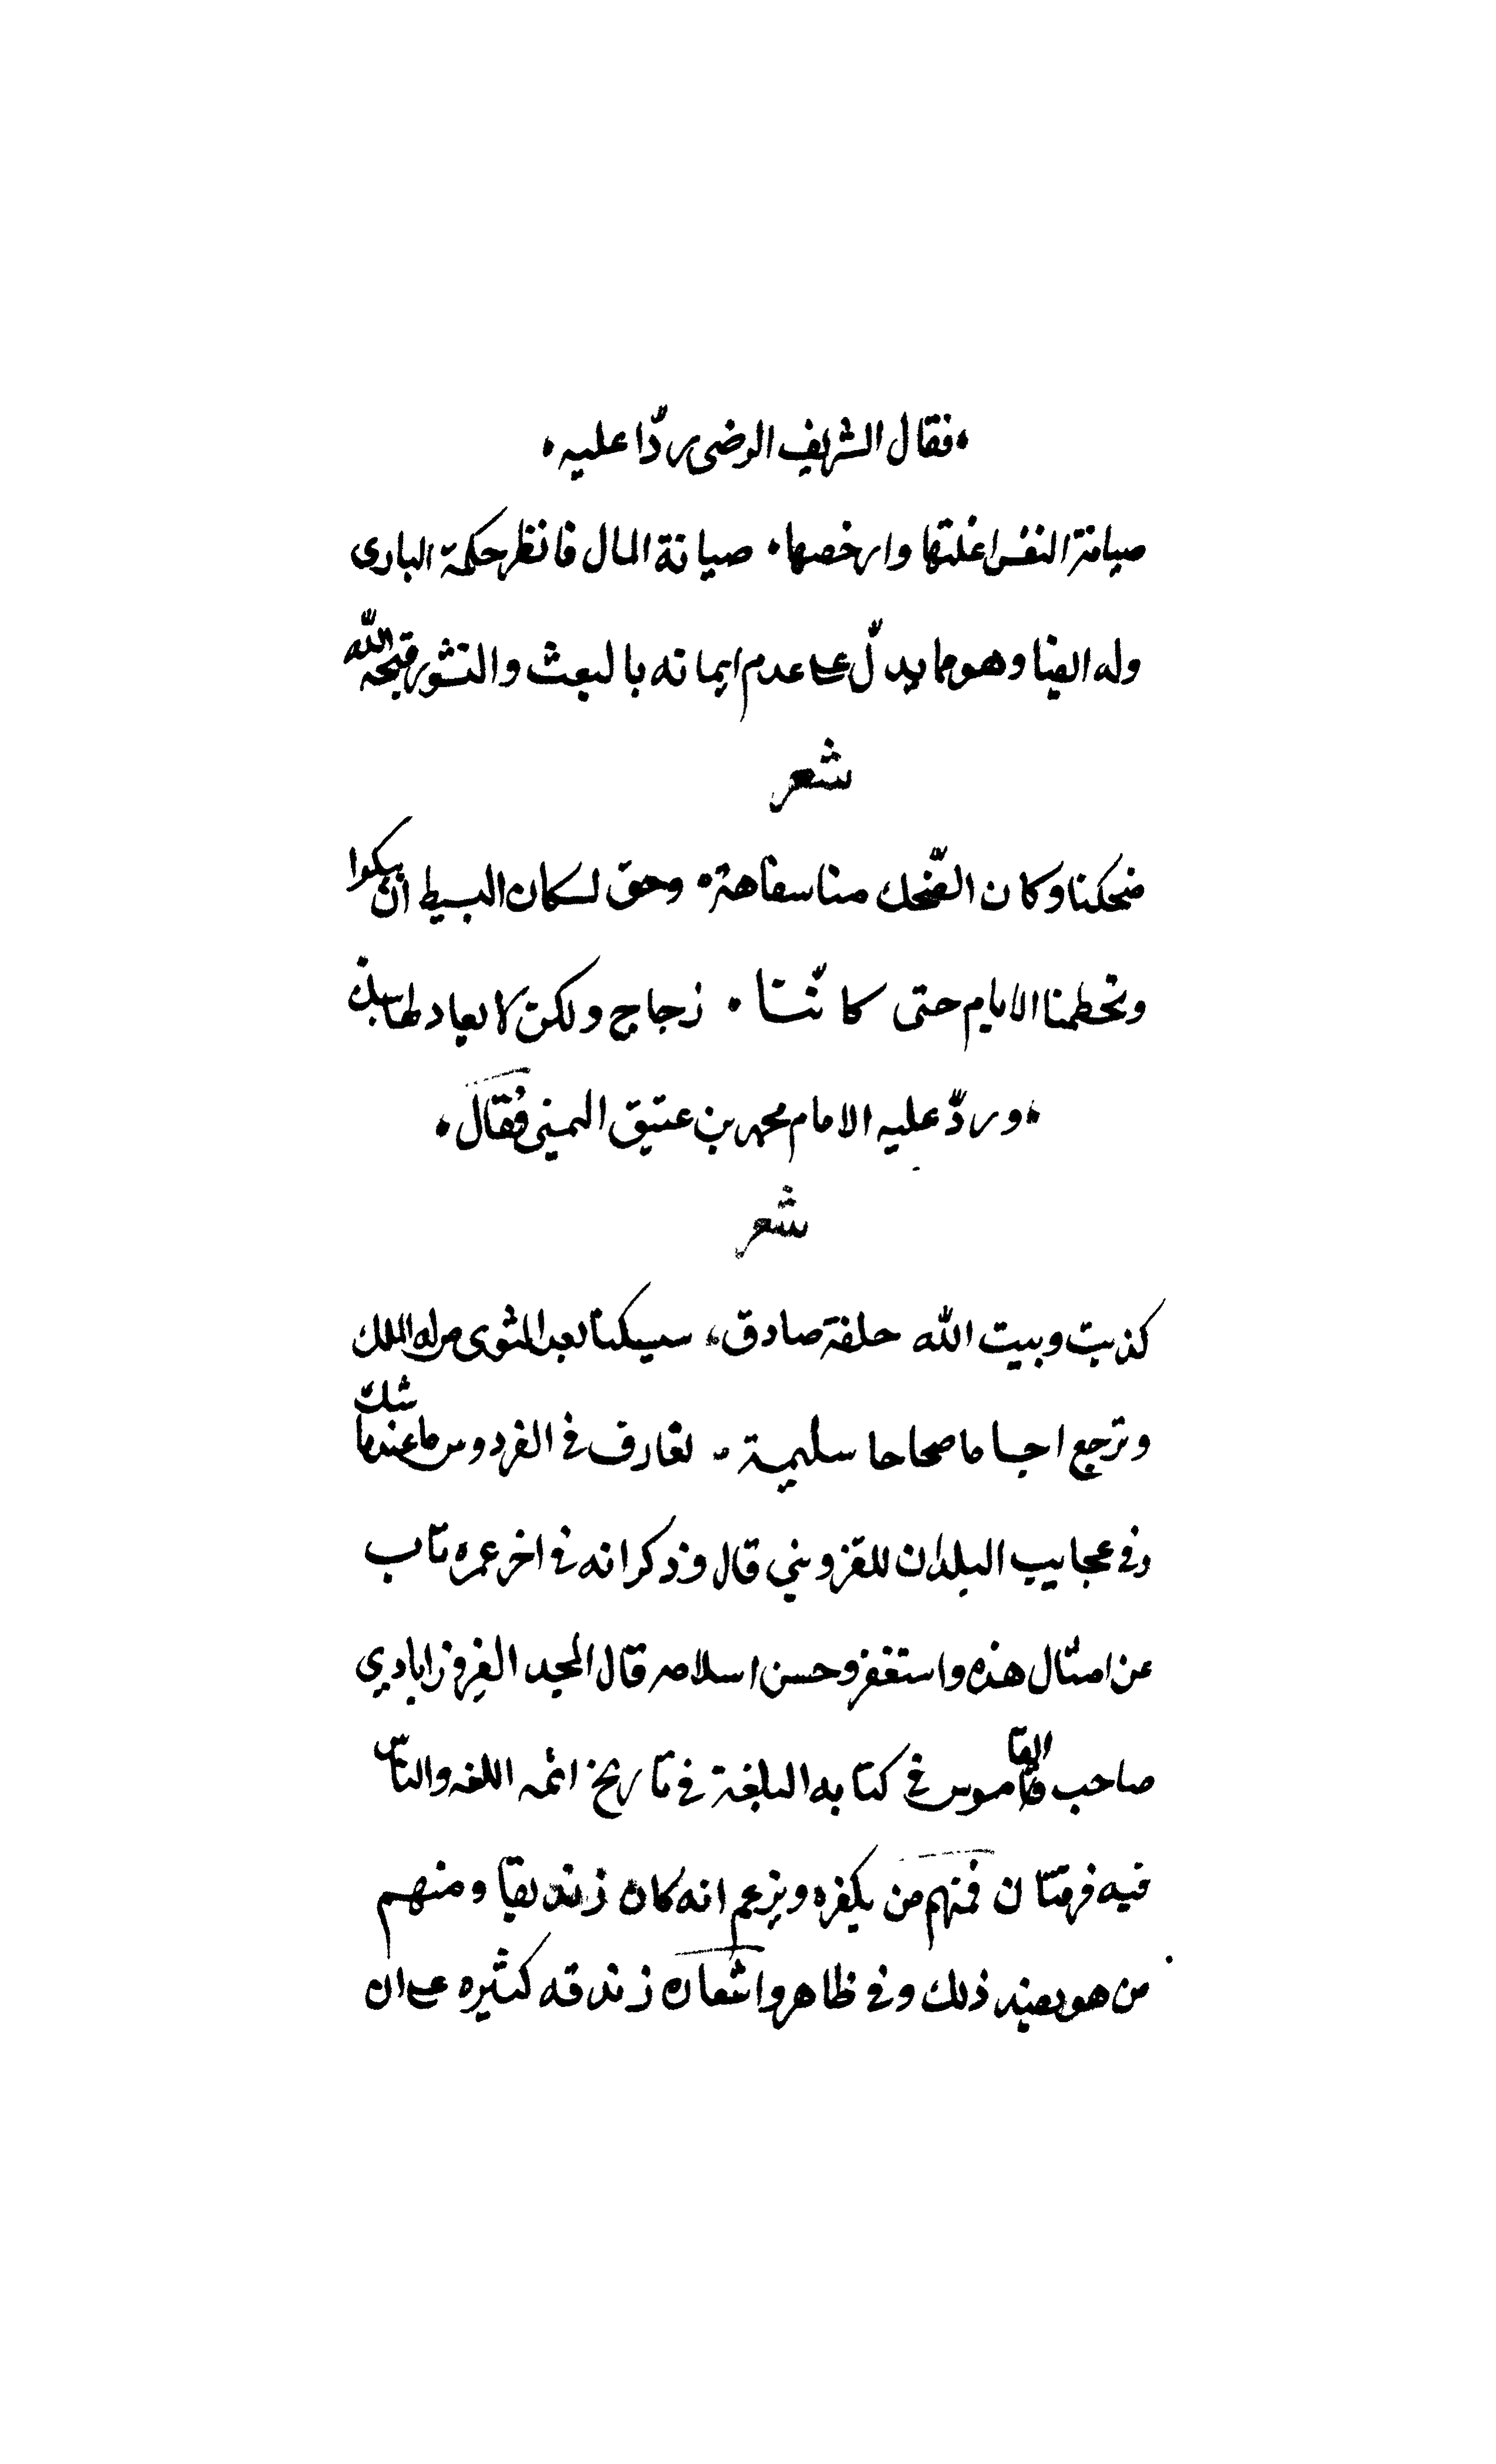 فقال الشريف الرضى ردّا عليه
صيانة النفس اغلتها وارخصها ٠ صيانة المال فانظر حكمة البارى
وله ايضا وهو مما يدلّ على عدم ايمانه بالبعث والنشور قبحه الله
شعر
ضحكنا وكان الضّحك منا سفاهة ٠ وحق لسكان البسيط ان يبكوا
وتحطمنا الايام حتى كانّنا ٠ زجاج ولكن لا يعاد لها سبك
وردّ عليه الامام محمد بن عتيق اليمنى فقال
شعر
كذبت وبيت الله حلفة صادق، سيسبكنا بعد الثوى من له الملك
وترجع اجساما صحاحا سليمة ٠ تعارف في الفردوس ما عندنا شك
وفي عجايب البلدان للقزويني قال وذكر انه في اخر عمره تاب
عن امثال هذه واستغفر وحسن اسلامه قال المجد الفيروزابادي
صاحب القاموس في كتابه البلغة في تاريخ ائمه اللغه والناس
فيه فرقتان فمنهم من يكفره ويزعم انه كان زنديقا ومنهم
من هو بضد ذلك وفي ظاهر اشعاره زندقه كثيره على ان